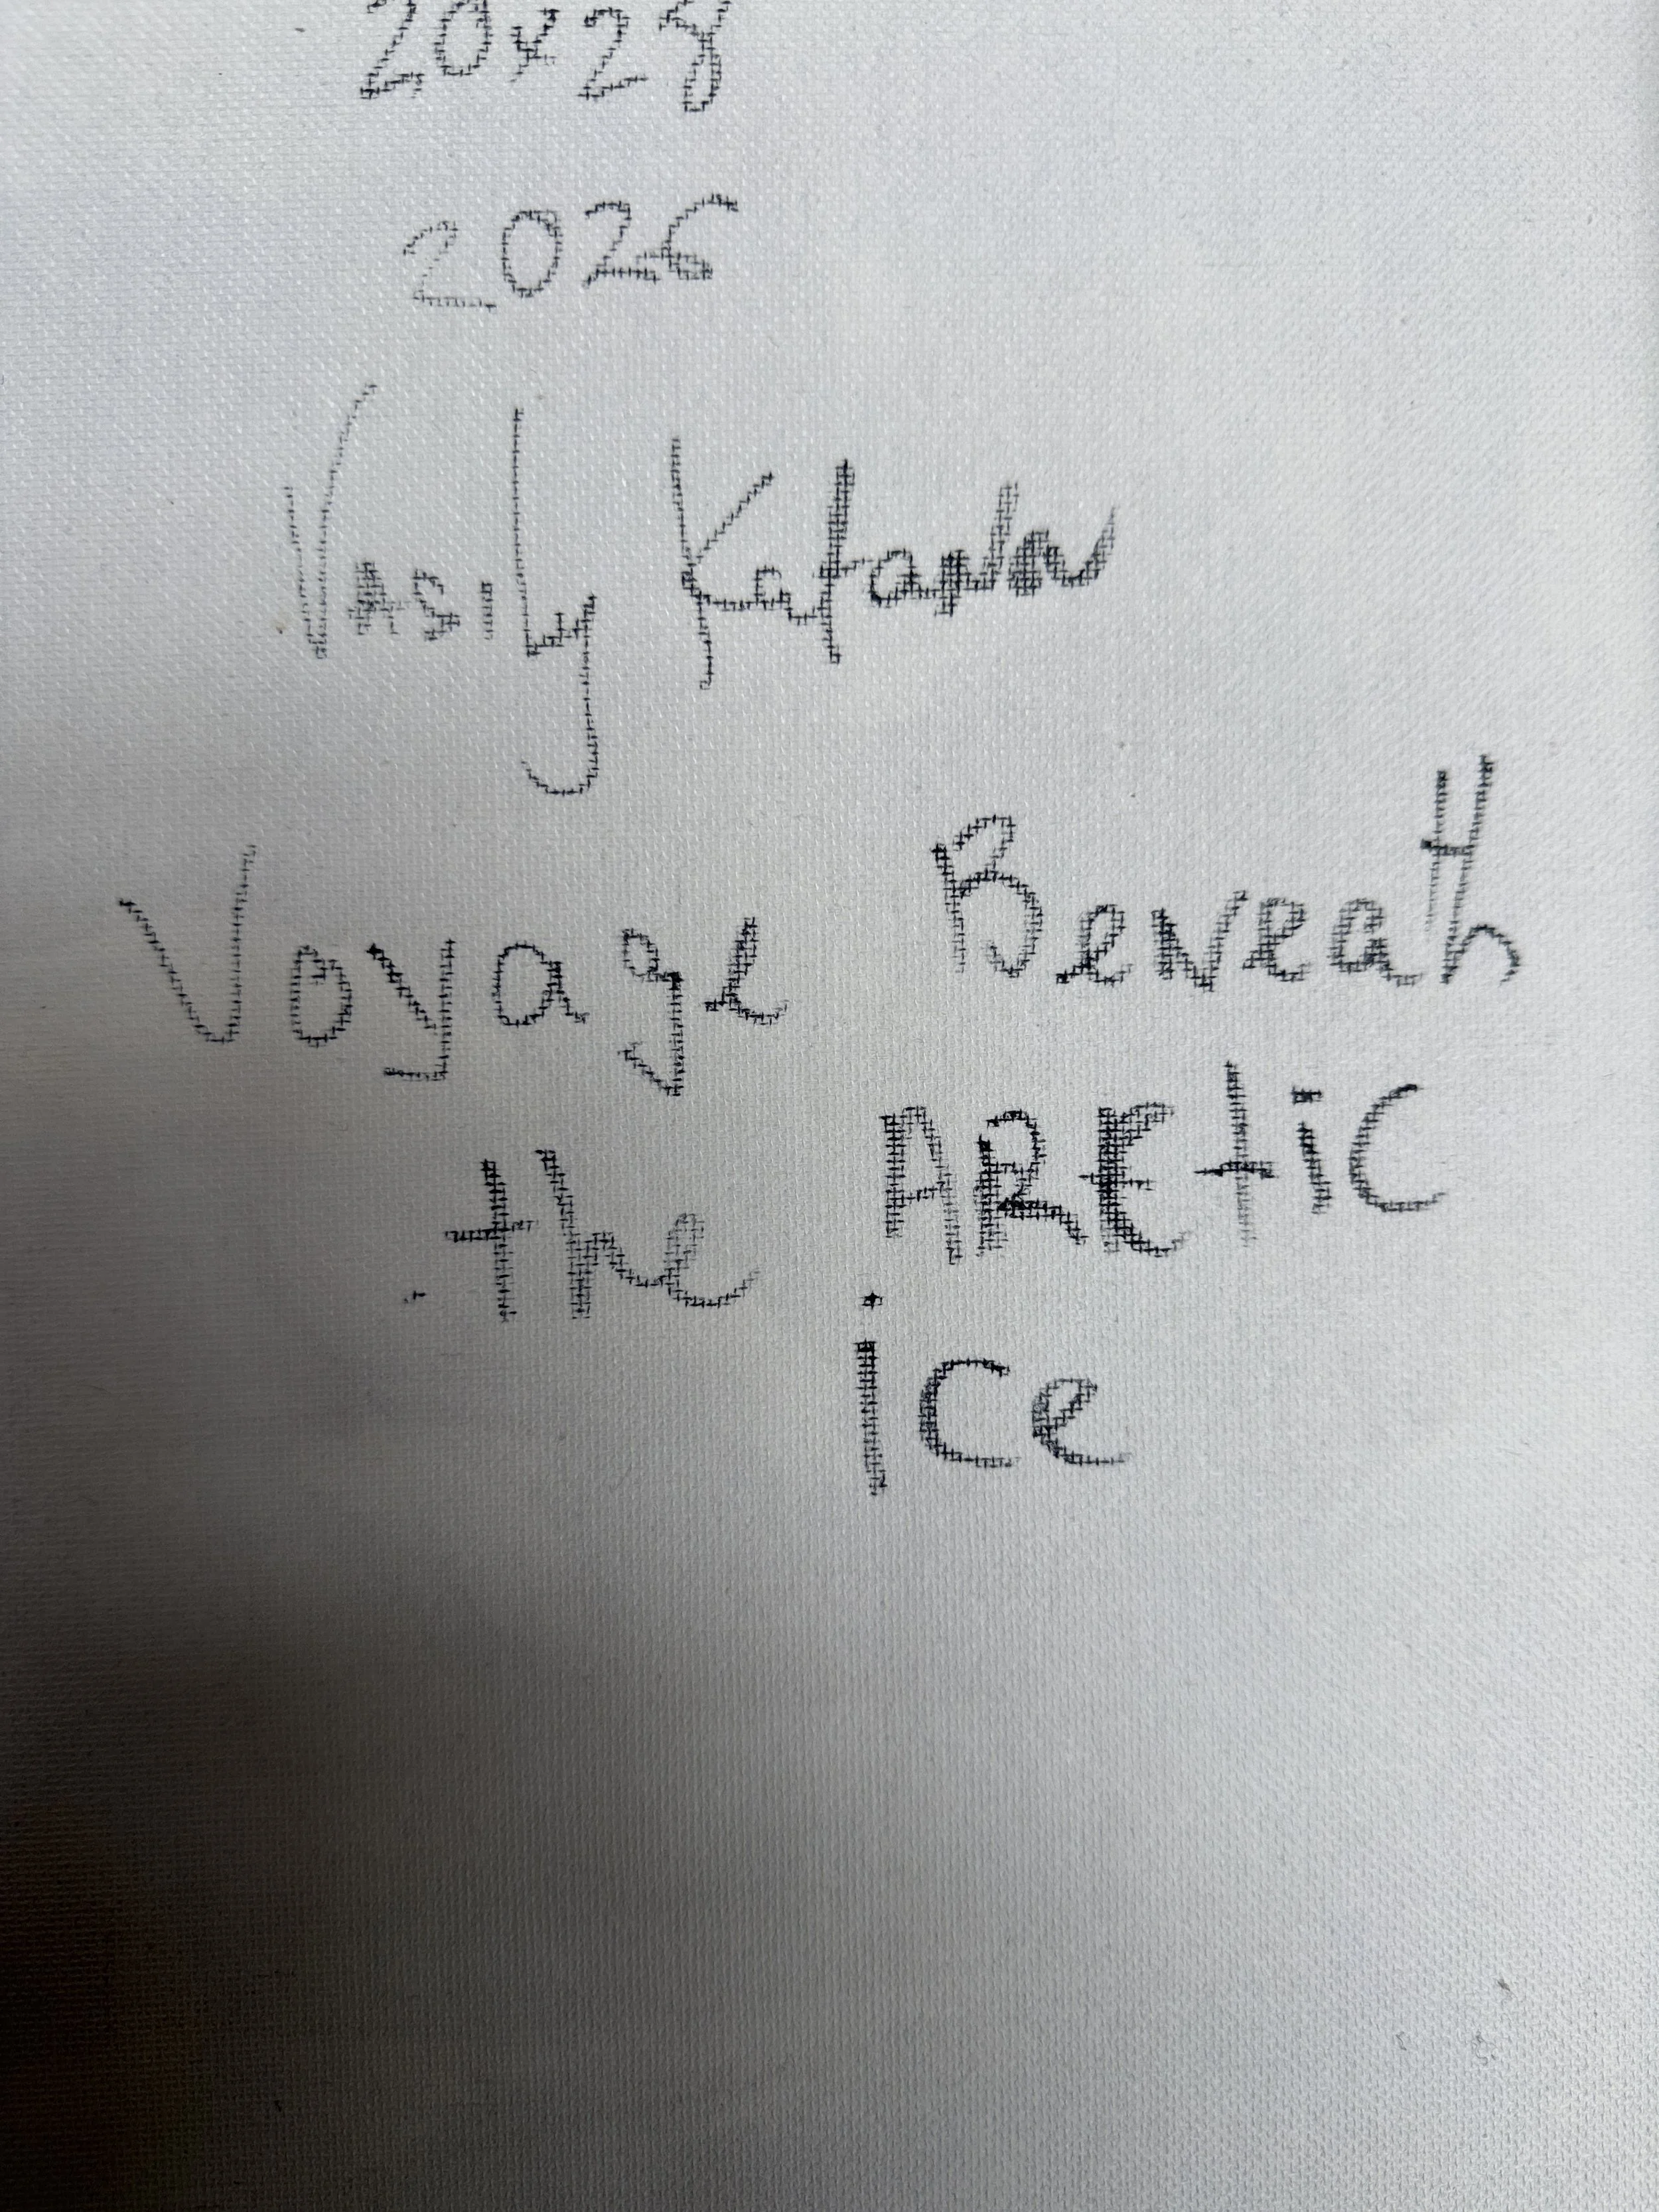 20x28
2026
Vasily
Voyage Beneath
the ARctic
ice